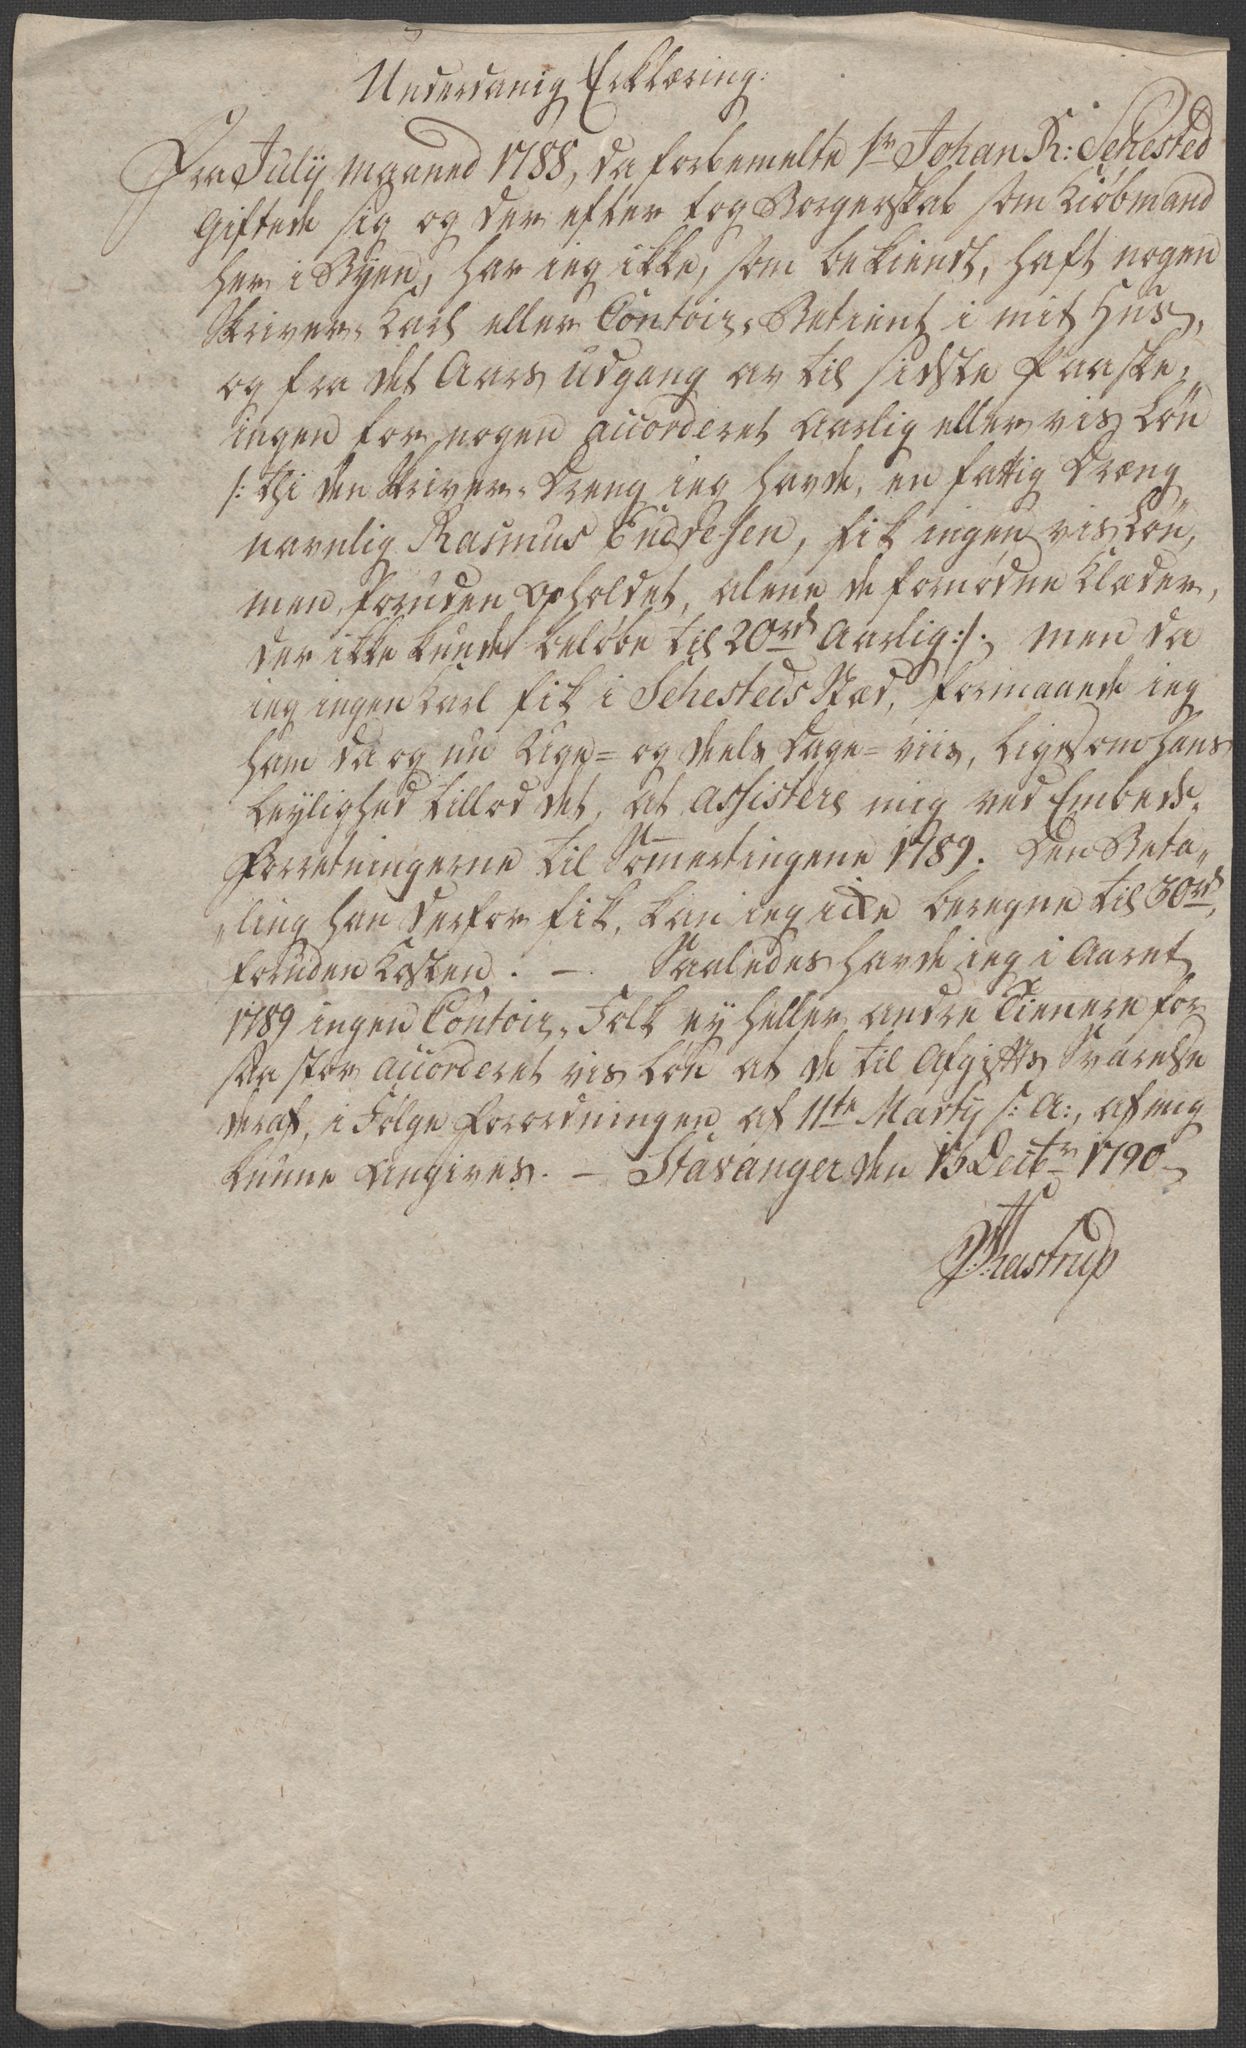 Underdanig Erklæring:
Fra July maaned 1788, da forbemelte Sr Johan K: Sehested
giftede sig og der efter tog Borgerskab som Kiöbmand
her i Byen, har ieg ikke, som bekiendt, haft nogen
Skriver-Karl eller Contoir-Betient i mit Huus,
og fra det Aars Udgang av til sidste Paaske,
ingen for nogen accorderet Aarlig eller vis Lön
/: thi den Skriver-Dreng ieg havde, en fattig Dreng
navnlig Rasmus Endresen, fik ingen vis Lön,
men, foruden Opholdet, alene de fornødne Klæder,
der ikke kunde beløbe til 20rd Aarlig:/. men da
ieg ingen Karl fik i Sehesteds Stæd, formaaede ieg
ham da og nu Uge= og deels Dage=viis, ligesom hans
Leylighed tillod det, at assistere mig ved Embeds-
Forretningerne til Somertingene 1789. Den Beta-
ling han derfor fik, kan ieg icke beregne til 30rd,
foruden Kosten. — Saaledes havde ieg i Aaret
1789 ingen Contoir-Folk ey heller andre Tienere for
saa stor accorderet vis Lön at de til Afgifts Svarelse
deraf, i Følge Forordningen af 11te Marty s: A:, af mig
kunne angives. — Stavanger den 13 Decbr 1790
Thastrup